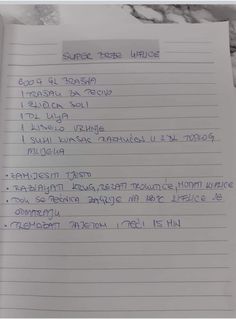 SUPER BRZE KIFLICE
600 G GL. BRAŠNA
1 PRAŠAK ZA PECIVO
1 ŽLIČICA SOLI
1 DL ULJA
1 KISELO VRHNJE
1 SUHI KVASAC RAZMUĆEN U 2 DL TOPLOG
MLIJEKA
• ZAMIJESITI TIJESTO
• RAZVALJATI KRUG, REZATI TROKUTIĆE, MOTATI KIFLICE
• DOK SE PEĆNICA ZAGRIJE NA KIFLICE SE
ODMARAJU
• PREMAZATI JAJETOM I PEĆI 15 MIN